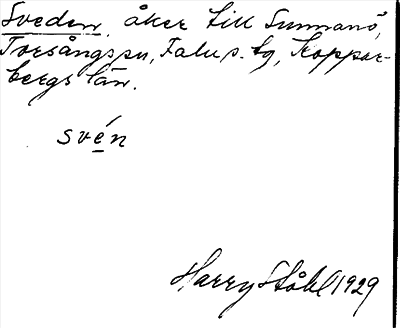 Sveden, åker till Sunnanö,
Torsångs sn, Falu s. tg, Koppar-
bergs län.
svén
Harry Ståhl 1929